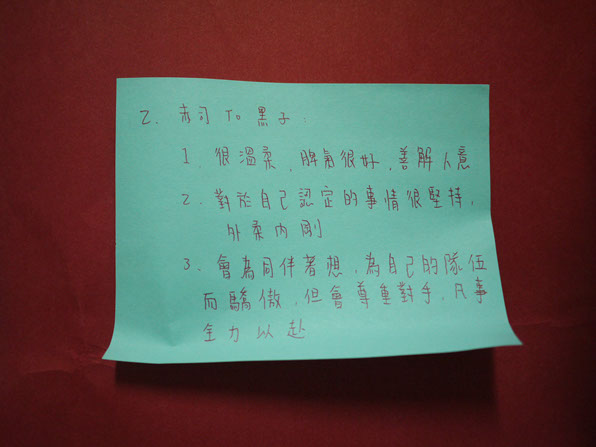 2. 赤司 To 黑子:
1. 很溫柔, 脾氣很好, 善解人意
2. 對於自己認定的事情很堅持,
外柔內剛
3. 會為同伴著想, 為自己的隊伍
而驕傲, 但會尊重對手, 凡事
全力以赴